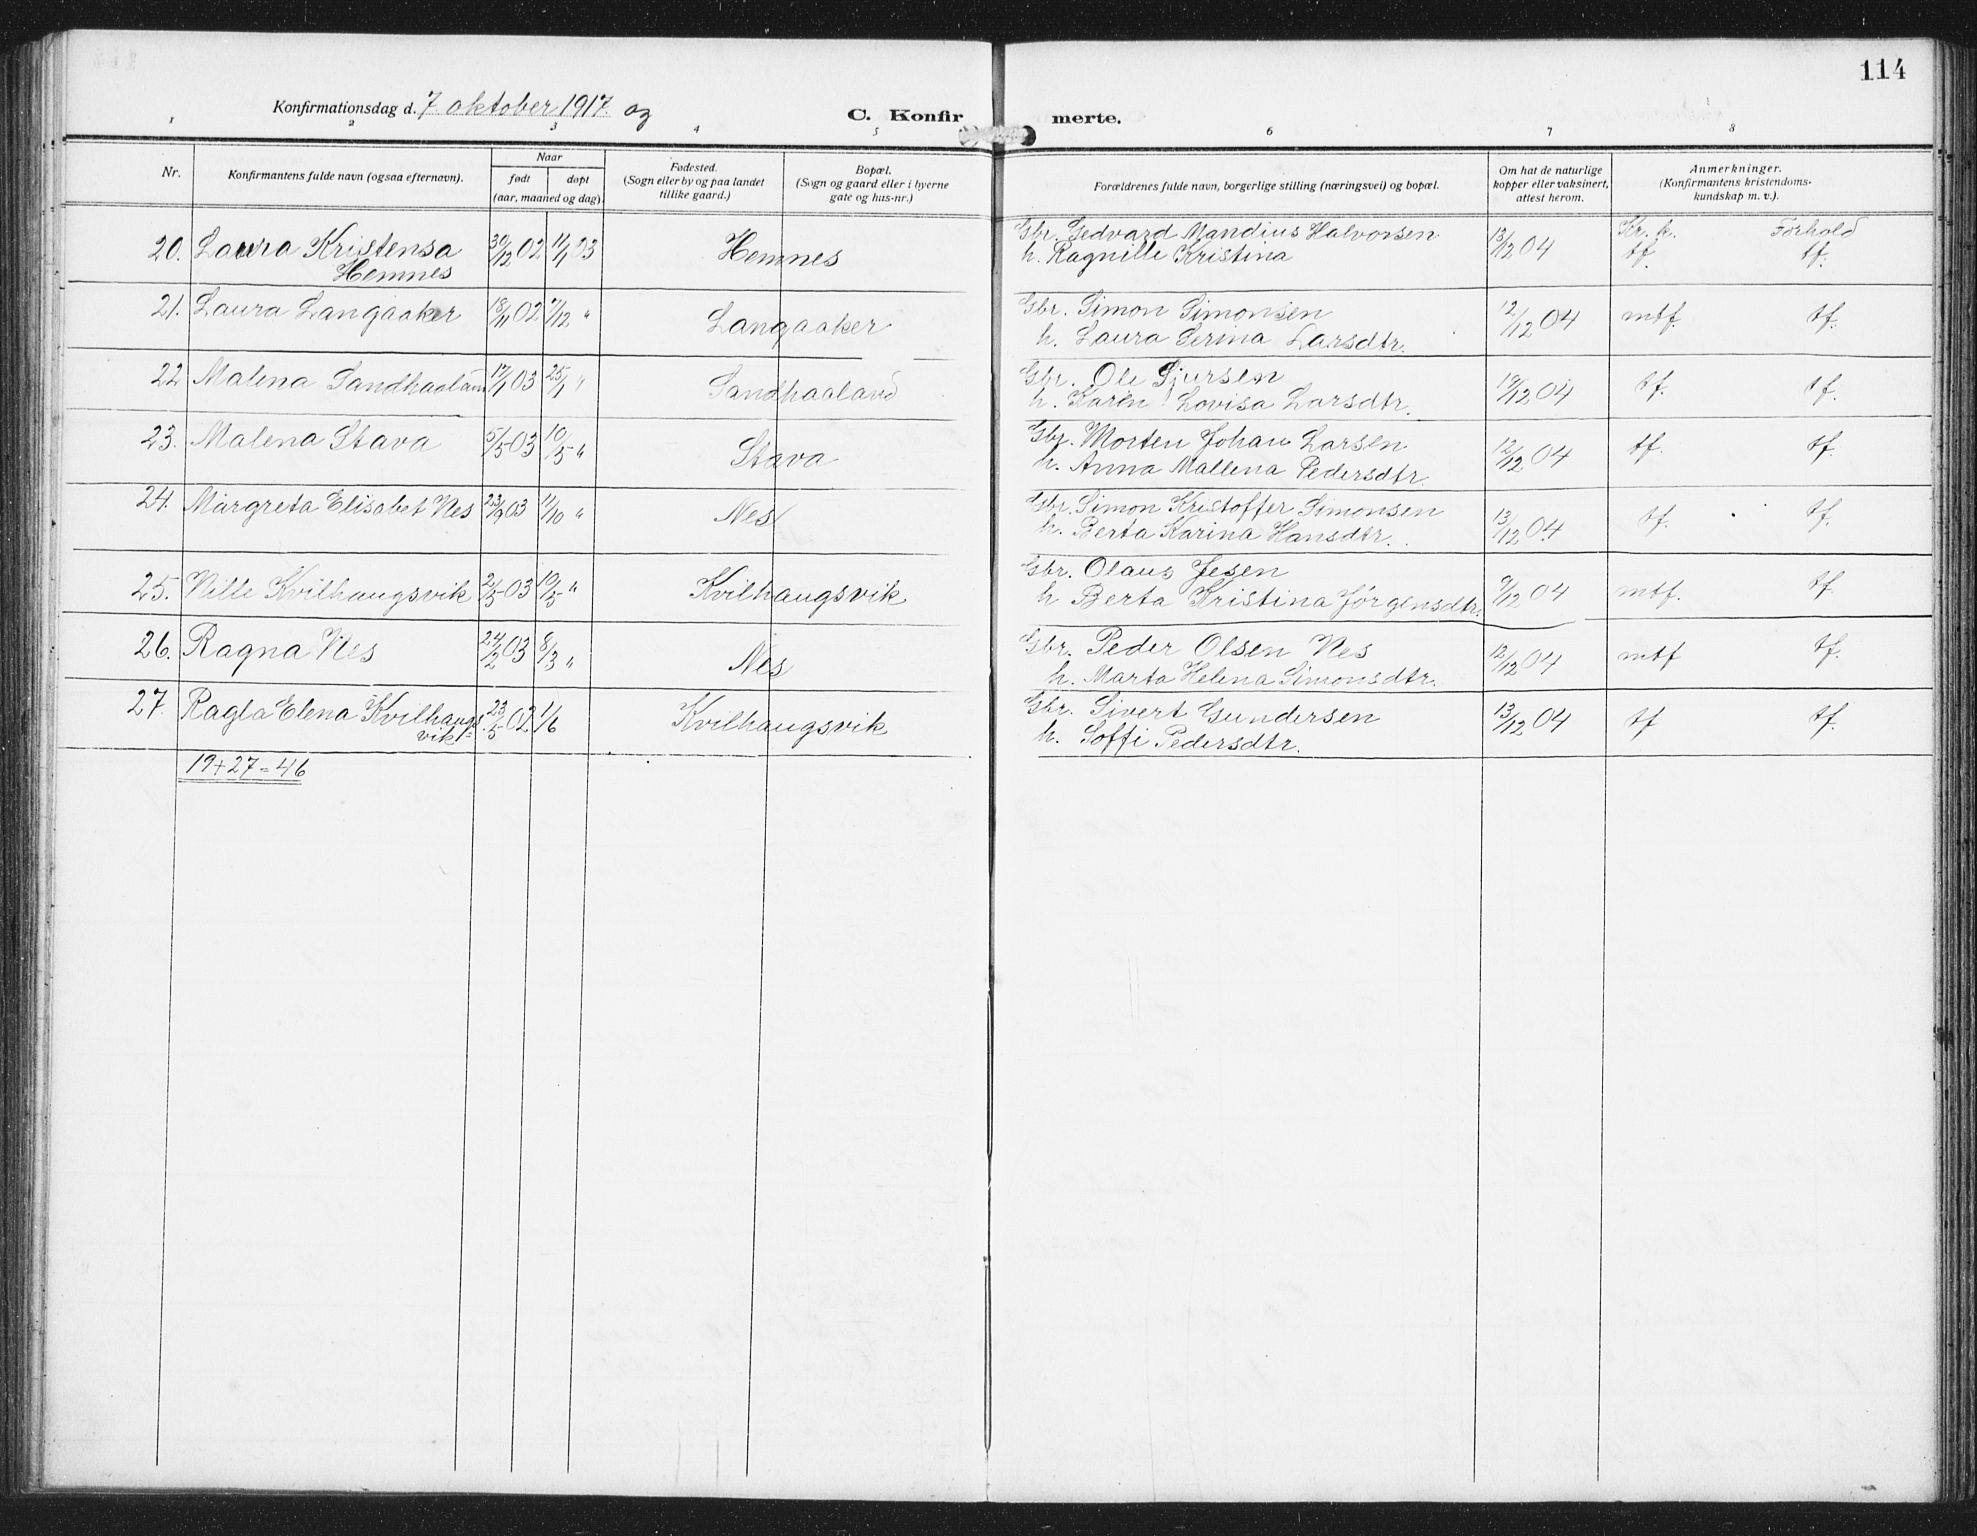 114
Konfirmationsdag d. 7 oktober 1917 og
C. Konfirmerte.
1 2 3 4 5 6 7 8
Nr.
Konfirmantens fulde navn (ogsaa efternavn).
Naar
født døpt
(aar, maaned og dag).
Fødested.
(Sogn eller by og paa landet
tillike gaard.)
Bopæl.
(Sogn og gaard eller i byerne
gate og hus-nr.)
Forældrenes fulde navn, borgerlige stilling (næringsvei) og bopæl.
Om hat de naturlige
kopper eller vaksinert,
attest herom.
Anmerkninger.
(Konfirmantens kristendoms-
kundskap m. v.).
20. Laura Kristensa 30/12 02 11/1 03 Hemnes Gbr. Gedvard Mandius Halvorsen 13/12 04 Kr. k. Forhold
Hemnes h. Ragnille Kristina tf. tf.
21. Laura Langaaker 18/11 02 7/12 " Langaaker Gbr. Simon Simonsen 12/12 04 mtf. tf.
h. Laura Serina Larsdtr.
22 Malena Sandhaaland 17/1 03 25/1 " Sandhaaland Gbr. Ole Sjursen 19/12 04 tf. tf.
h. Karen Lovisa Larsdtr.
23. Malena Stava 5/5 03 10/5 " Stava Gbr. Morten Johan Larsen 12/12 04 tf. tf.
h. Anna Mallena Pedersdtr.
24. Margreta Elisabet Nes 23/9 03 11/10 " Nes Gbr. Simon Kristoffer Simonsen 13/12 04. tf. tf.
h. Berta Karina Hansdtr.
25. Nille Kvilhaugsvik 2/5 03 10/5 " Kvilhaugsvik Gbr. Olaus Jesen 9/12 04 mtf. tf.
h Berta Kristina Jörgensdtr.
26. Ragna Nes 24/2 03 8/3 " Nes Gbr. Peder Olsen Nes 12/12 04 mtf tf.
h. Marta Helena Simonsdtr.
27. Ragla Elena Kvilhaugs- 23/5 02 1/6 Kvilhaugsvik Gbr. Sivert Gundersen 13/12 04 tf tf.
vik h. Soffi Pedersdtr.
19+27=46